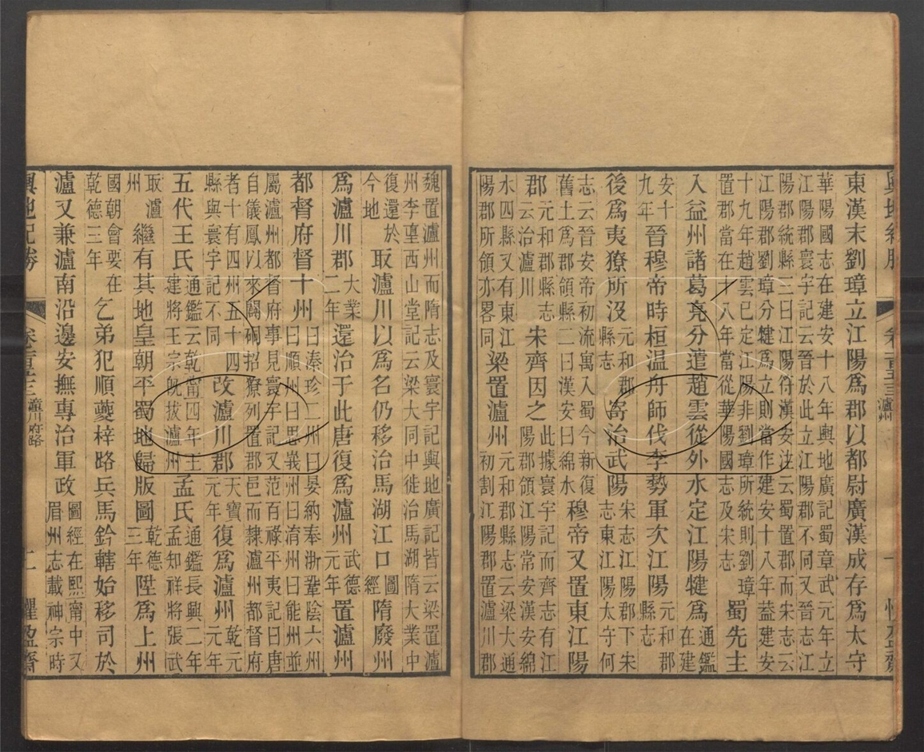 東漢末劉璋立江陽爲郡以都尉廣漢成存爲太守
華陽國志在建安十八年輿地廣記蜀章武元年立
江陽郡寰宇記云晉於此立江陽郡不同又晉志江
陽郡統縣三曰江陽符漢安注云蜀置郡而宋志云
江陽郡劉璋分犍爲立則當作建安十八年益建安
十九年趙雲已定江陽非劉璋所統則劉璋
置郡當在十八年當從華陽國志及宋志
蜀先主
入益州諸葛亮分遣趙雲從外水定江陽犍爲
通鑑
在建
安十
九年
晉穆帝時桓温舟師伐李勢軍次江陽
元和郡
縣志
後爲夷獠所没
元和郡
縣志
寄治武陽
宋志江陽郡下宋
志東江陽太守何
志云晉安帝初流寓入蜀今新復
舊土爲郡領縣二曰漢安曰綿水
穆帝又置東江陽
郡
元和郡縣志
云治瀘川
宋齊因之
此據寰宇記而齊志有江
陽郡領江陽常安漢安綿
水四縣又有東江
陽郡所領亦畧同
梁置瀘州
元和郡縣志云梁大通
初割江陽郡置瀘川郡
魏置瀘州而隋志及寰宇記輿地廣記皆云梁置瀘
西山堂記云梁大同中徙治馬湖隋大業中
復還於
今地
取瀘川以爲名仍移治馬湖江口
圖
經
隋廢州
爲瀘川郡
大業
二年
還治于此唐復爲瀘州
武德
元年
置瀘州
都督府督十州
曰溱珍二州曰晏納奉浙鞏陰六州
曰順州曰思義州曰淯州曰能州並
屬瀘州都督府事見寰宇記又范百祿平夷記曰唐
自儀鳳以來闢磵招獠列置郡邑而隸瀘州都督府
者十有四州五十四
縣與寰宇記不同
改瀘川郡
天寶
元年
復爲瀘州
乾元
元年
五代王氏
通鑑云乾甯四年王
建將王宗皖拔瀘州
孟氏
通鑑長興二年
孟知祥將張武
取瀘
州
繼有其地皇朝平蜀地歸版圖
乾德
三年
陞爲上州
國朝會要在
乾德三年
乞弟犯順夔梓路兵馬鈐轄始移司於
瀘又兼瀘南沿邊安撫專治軍政
圖經在熙南中又
眉州志載神宗時
輿地紀勝
瀘川府路
二
懼盈齋